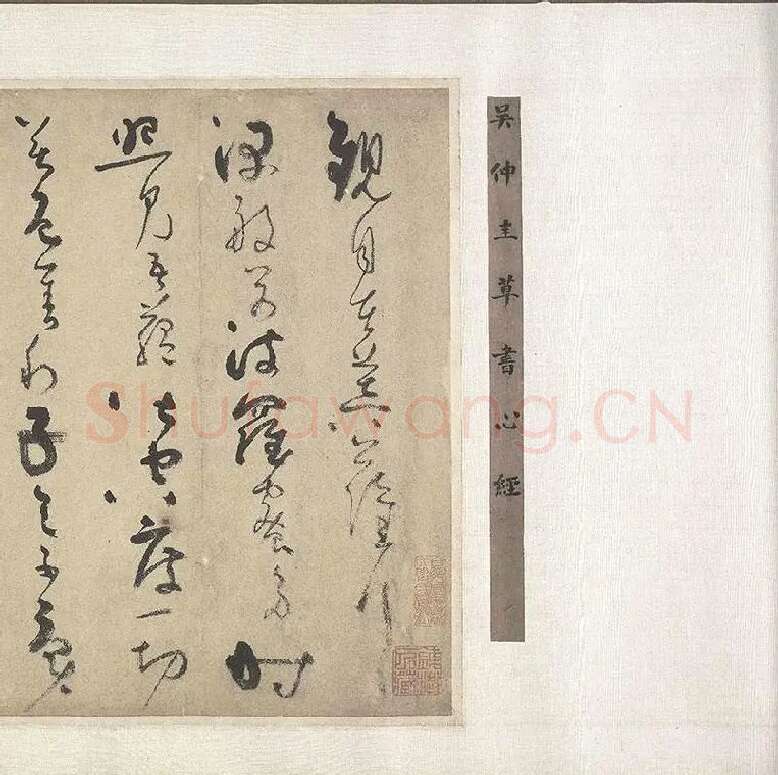 吳仲圭草書心經
觀自在菩薩行
深般若波羅蜜多時
照見五蘊皆空度一切
苦厄舍利子色不異
Shufawang.CN